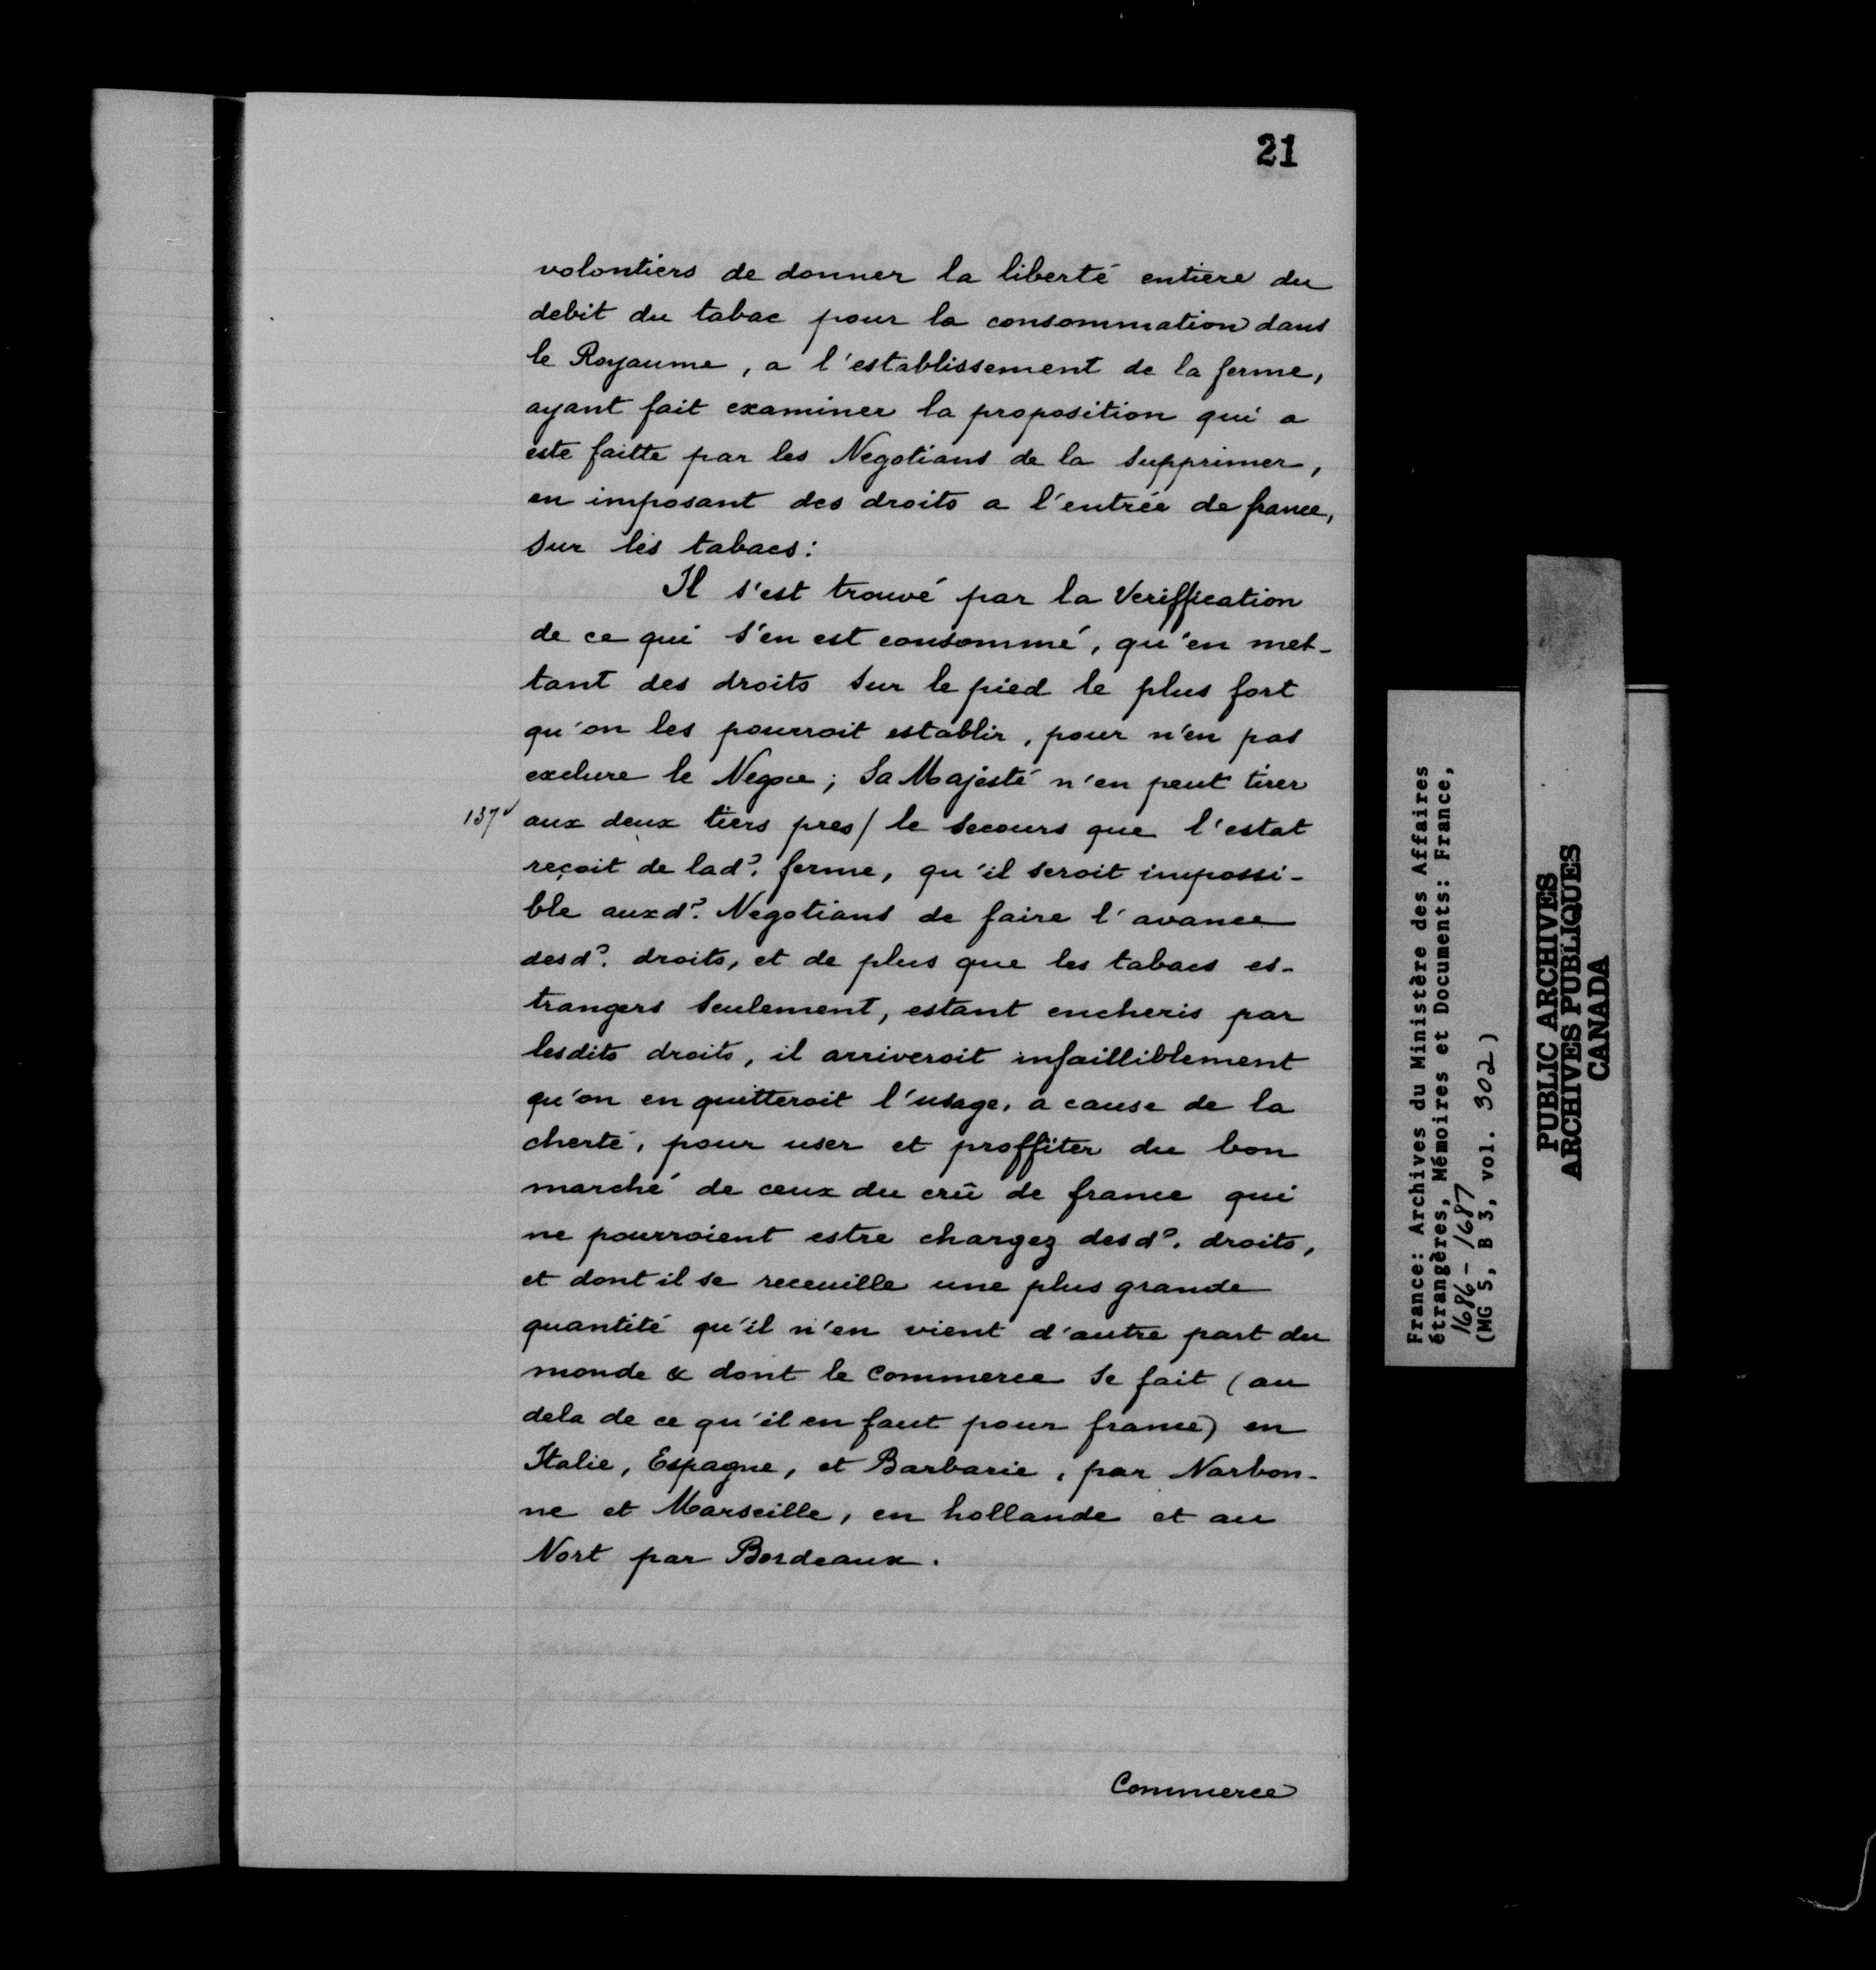 21
volontiers de donner la liberté entiere du
debit du tabac pour la consommation dans
le Royaume, a l'establissement de la ferme,
ayant fait examiner la proposition qui a
este faitte par les Negotians de la supprimer,
en imposant des droits a l'entrée de france,
sur les tabacs:
Il s'est trouvé par la Veriffication
de ce qui s'en est consommé, qu'en met-
tant des droits sur le pied le plus fort
qu'on les pourroit establir, pour n'en pas
exclure le Negoce; Sa Majesté n'en peut tirer
137v aux deux tiers pres/ le secours que l'estat
reçoit de lad?. ferme, qu'il seroit impossi-
ble auxd?. Negotians de faire l'avance
desd?. droits, et de plus que les tabacs es-
trangers seulement, estant encheris par
lesdits droits, il arriveroit infailliblement
qu'on en quitteroit l'usage, a cause de la
cherté, pour user et proffiter du bon
marché de ceux du crû de france qui
ne pourroient estre chargez desd?. droits,
et dont il se receuille une plus grande
quantité qu'il n'en vient d'autre part du
monde & dont le Commerce se fait (au
dela de ce qu'il en faut pour france) en
Italie, Espagne, et Barbarie, par Narbon-
ne et Marseille, en hollande et au
Nort par Bordeaux.
Commerce
France: Archives du Ministère des Affaires
étrangères, Mémoires et Documents: France,
1686-1687
(MG 5, B 3, vol. 302)
PUBLIC ARCHIVES
ARCHIVES PUBLIQUES
CANADA